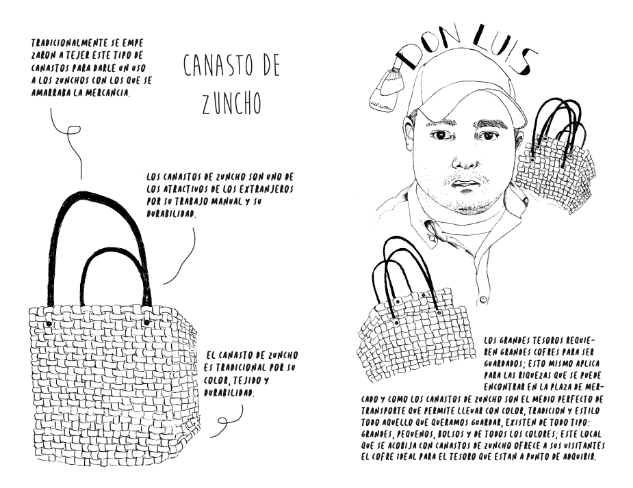 TRADICIONALMENTE SE EMPE
ZARON A TEJER ESTE TIPO DE
CANASTOS PARA DARLE UN USO
A LOS ZUNCHOS CON LOS QUE SE
AMARRABA LA MERCANCIA.
CANASTO DE
ZUNCHO
LOS CANASTOS DE ZUNCHO SON UNO DE
LOS ATRACTIVOS DE LOS EXTRANJEROS
POR SU TRABAJO MANUAL Y SU
DURABILIDAD.
EL CANASTO DE ZUNCHO
ES TRADICIONAL POR SU
COLOR, TEJIDO Y
DURABILIDAD.
DON LUIS
LOS GRANDES TESOROS REQUIE-
REN GRANDES COFRES PARA SER
GUARDADOS; ESTO MISMO APLICA
PARA LAS RIQUEZAS QUE SE PUEDE
ENCONTRAR EN LA PLAZA DE MER-
CADO Y COMO LOS CANASTOS DE ZUNCHO SON EL MEDIO PERFECTO DE
TRANSPORTE QUE PERMITE LLEVAR CON COLOR, TRADICION Y ESTILO
TODO AQUELLO QUE QUERAMOS GUARDAR, EXISTEN DE TODO TIPO:
GRANDES, PEQUENOS, BOLSOS Y DE TODOS LOS COLORES; ESTE LOCAL
QUE SE ACOBIJA CON CANASTOS DE ZUNCHO OFRECE A SUS VISITANTES
EL COFRE IDEAL PARA EL TESORO QUE ESTAN A PUNTO DE ADQUIRIR.